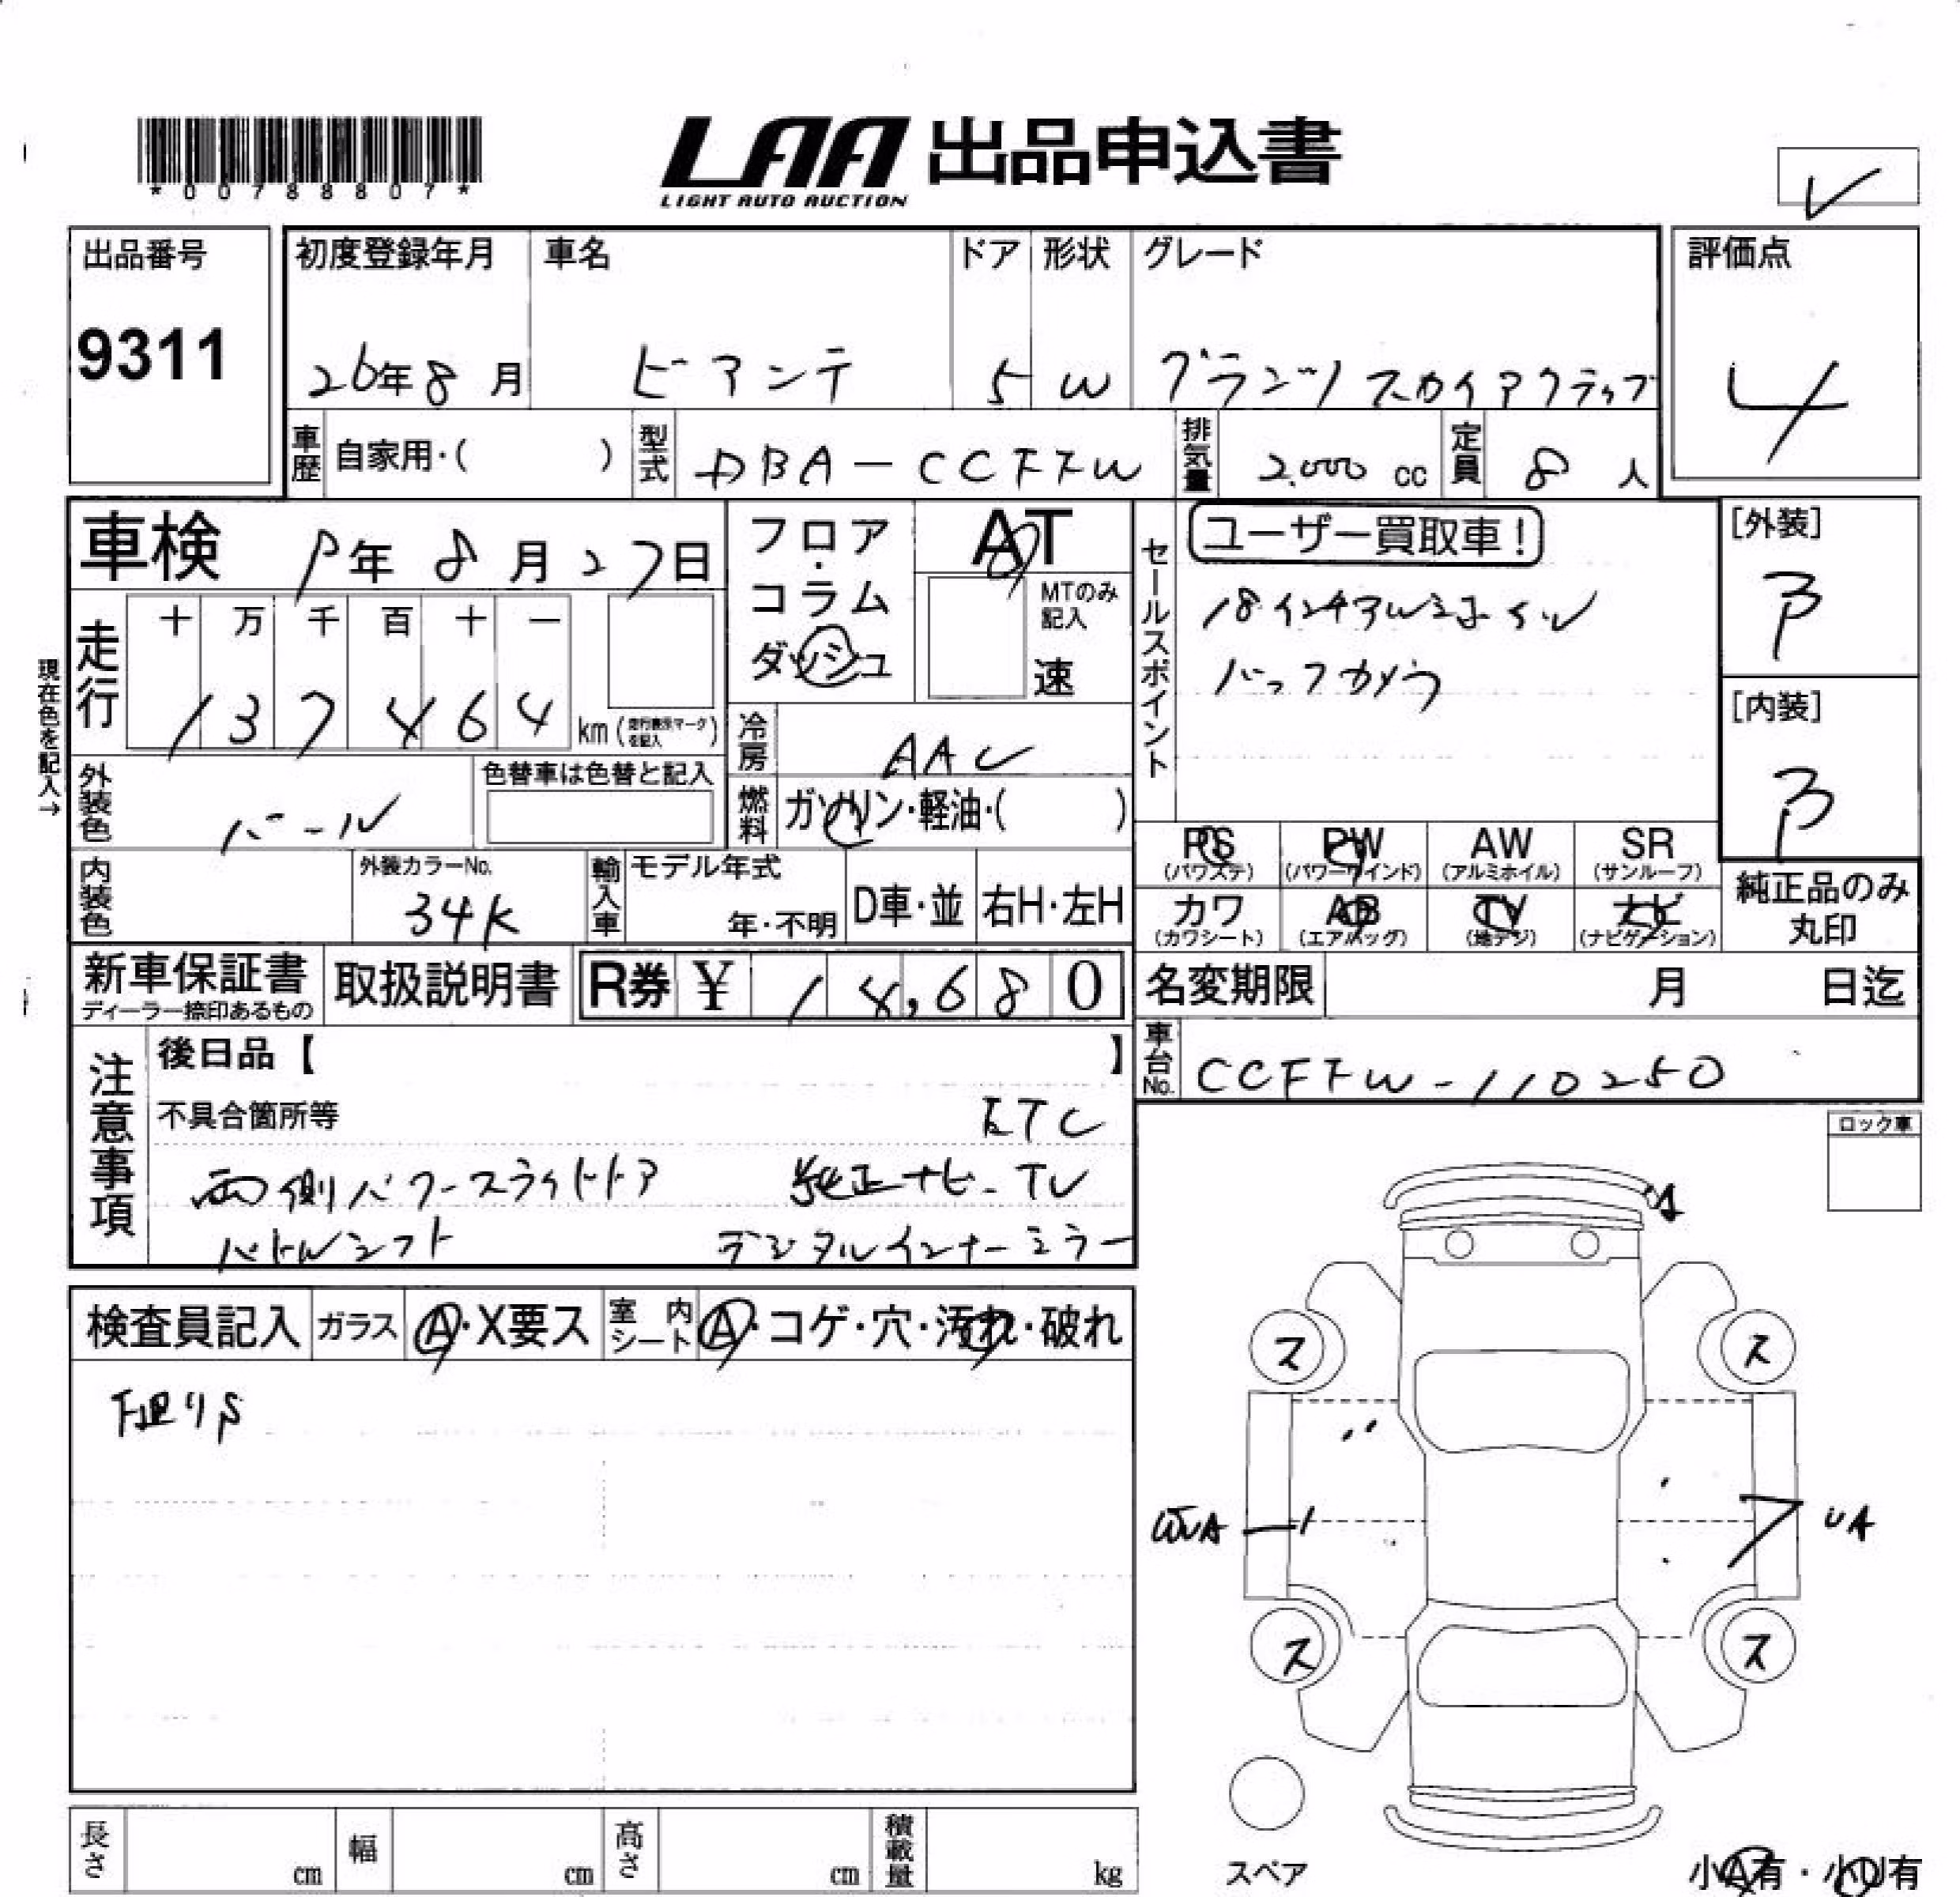 *0078807*
LAA 出品申込書
LIGHT AUTO AUCTION
出品番号
9311
初度登録年月
26年8月
車名
ビアンテ
ドア
5
形状
W
グレード
グランツ スカイアクティブ
評価点
4
車歴 自家用・( )
型式 DBA-CCFFW
排気量 2,000 cc
定員 8 人
車検 年 8 月 27日
走行
十 万 千 百 十 一
1 3 7 4 6 4 km (走行表示マークを記入)
現在色を記入→
外装色 パール
色替車は色替と記入
内装色
外装カラーNo.
34K
輸入車
モデル年式
年・不明
D車・並
右H・左H
フロア・コラム
ダッシュ
AT
MTのみ記入
速
冷房 AAC
燃料 ガソリン・軽油・( )
セールスポイント
ユーザー買取車!
18インチアルミホイール
バックカメラ
[外装]
B
[内装]
B
PS (パワステ)
PW (パワーウインド)
AW (アルミホイル)
SR (サンルーフ)
カワ (カワシート)
AB (エアバッグ)
TV (地デジ)
ナビ (ナビゲーション)
純正品のみ丸印
新車保証書
ディーラー捺印あるもの
取扱説明書
R券 ¥ 14,680
名変期限 月 日迄
車台No. CCFFW-110250
注意事項
後日品【 】
不具合箇所等
ETC
両側パワースライドドア 純正ナビ-TV
パドルシフト デジタルインナーミラー
ロック車
検査員記入
ガラス A・X要ス
室内シート A・コゲ・穴・汚れ・破れ
下廻りS
A
ス ス
UA
ス ス
スペア
小A有・小U有
長さ cm
幅 cm
高さ cm
積載量 kg